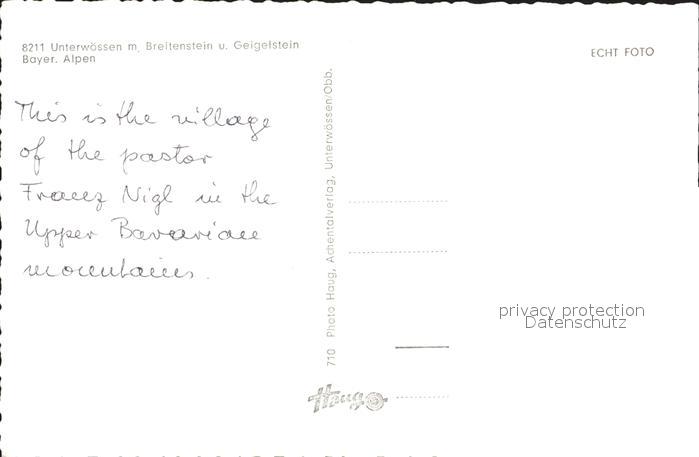 8211 Unterwössen m. Breitenstein u. Geigelstein
Bayer. Alpen
ECHT FOTO
This is the village
of the pastor
Franz Nigl in the
Upper Bavarian
mountains.
710 Photo Haug, Achentalverlag, Unterwössen/Obb.
privacy protection
Datenschutz
Haug